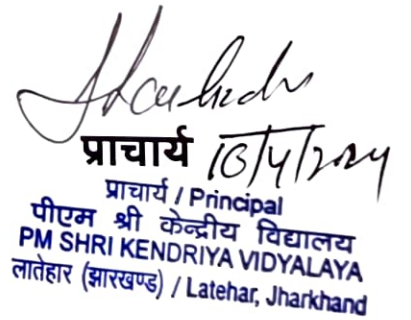 प्राचार्य
प्राचार्य / Principal
पीएम श्री केन्द्रीय विद्यालय
PM SHRI KENDRIYA VIDYALAYA
लातेहार (झारखण्ड) / Latehar, Jharkhand